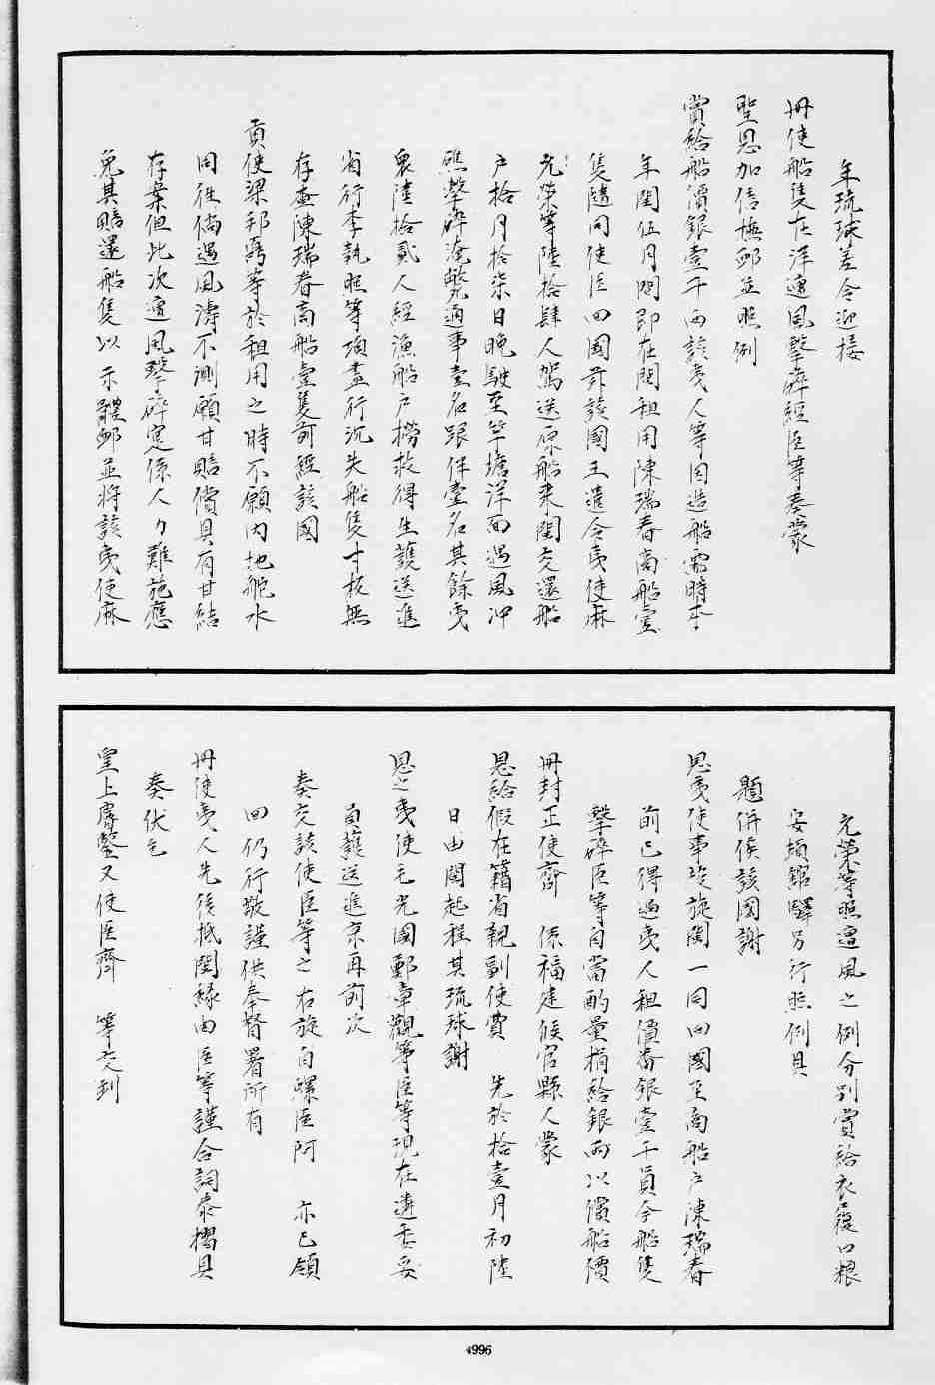 年琉球差令迎接
冊使船隻在洋遭風擊碎經臣等奏蒙
聖恩加倍撫卹並照例
賞給船價銀壹千兩該夷人等因造船需時本
年閏伍月間即在閩租用陳瑞春商船壹
隻隨同使臣回國前該國王遣令夷使麻
允榮等陸拾肆人駕送原船來閩交還船
戶拾月拾柒日晚駛至竿塘洋面遇風冲
礁擊碎淹斃通事壹名跟伴壹名其餘夷
衆陸拾貳人經漁船戶撈救得生護送進
省行李執照等項盡行沉失船隻寸板無
存查陳瑞春商船壹隻前經該國
貢使梁邦弼等於租用之時不願內地舵水
同往倘遇風濤不測願甘賠償具有甘結
存案但此次遭風擊碎寔係人力難施應
免其賠還船隻以示體卹並將該夷使麻
允榮等照遭風之例分別賞給衣履口粮
安頓館驛另行照例具
題併俟該國謝
恩夷使事竣旋閩一同回國至商船戶陳瑞春
前已得過夷人租價番銀壹千員今船隻
擊碎臣等自當酌量捐給銀兩以償船價
冊封正使齊 係福建候官縣人蒙
恩給假在籍省親副使費 先於拾壹月初陸
日由閩起程其琉球謝
恩之夷使毛光國鄭章觀等臣等現在遴委妥
員護送進京再前次
奏交該使臣等之右旋白螺臣阿 亦已領
回仍行敬謹供奉督署所有
冊使夷人先後抵閩緣由臣等謹合詞恭摺具
奏伏乞
皇上睿鑒又使臣齊 等交到
4996